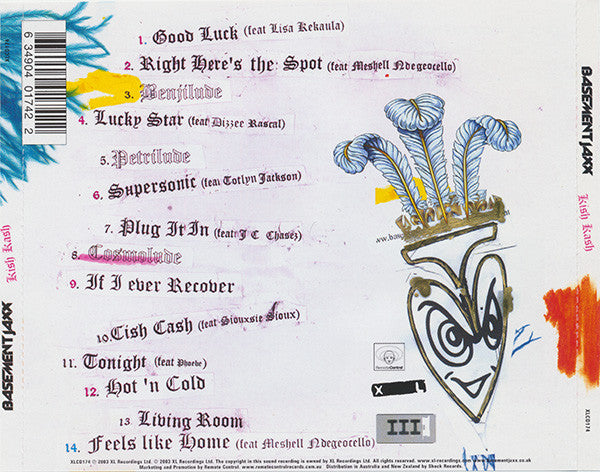 1. Good Luck (feat Lisa Kekaula)
2. Right Here's the Spot (feat Meshell Ndegeocello)
3. Benjilude
4. Lucky Star (feat Dizzee Rascal)
5. Petrilude
6. Supersonic (feat Totlyn Jackson)
7. Plug It In (feat J C Chasez)
8. Cosmolude
9. If I ever Recover
10. Cish Cash (feat Siouxsie Sioux)
11. Tonight (feat Phoebe)
12. Hot 'n Cold
13 Living Room
14. Feels like Home (feat Meshell Ndegeocello)
6 34904 01742 2
XLCD174
Kish Kash
BASEMENT JAXX
BASEMENT JAXX
Kish Kash
XLCD174
RemoteControl
X L
III
XLCD174 ℗ 2003 XL Recordings Ltd. © 2003 XL Recordings Ltd. The copyright in this sound recording is owned by XL Recordings Ltd.
Marketing and Promotion by Remote Control. www.remotecontrolrecords.com.au Distribution in Australia and New Zealand by Shock Records